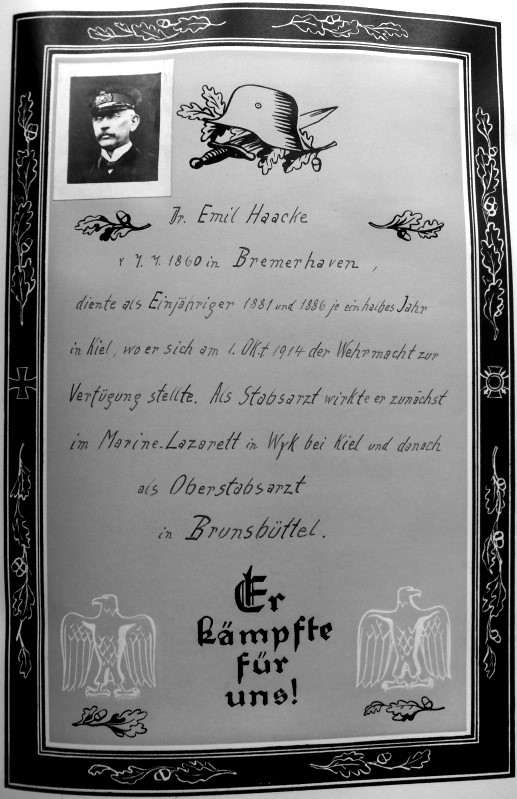 Dr. Emil Haacke
* 7. 7. 1860 in Bremerhaven,
diente als Einjähriger 1881 und 1886 je ein halbes Jahr
in Kiel, wo er sich am 1. Okt 1914 der Wehrmacht zur
Verfügung stellte. Als Stabsarzt wirkte er zunächst
im Marine-Lazarett in Wyk bei Kiel und danach
als Oberstabsarzt
in Brunsbüttel.
Er
kämpfte
für
uns!